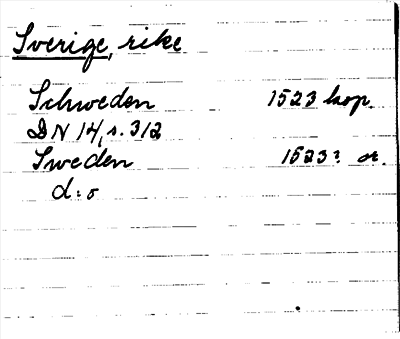 Sverige, rike
Schweden 1523 kop.
DN 14, s. 312
Sweden 1523? or.
d:o